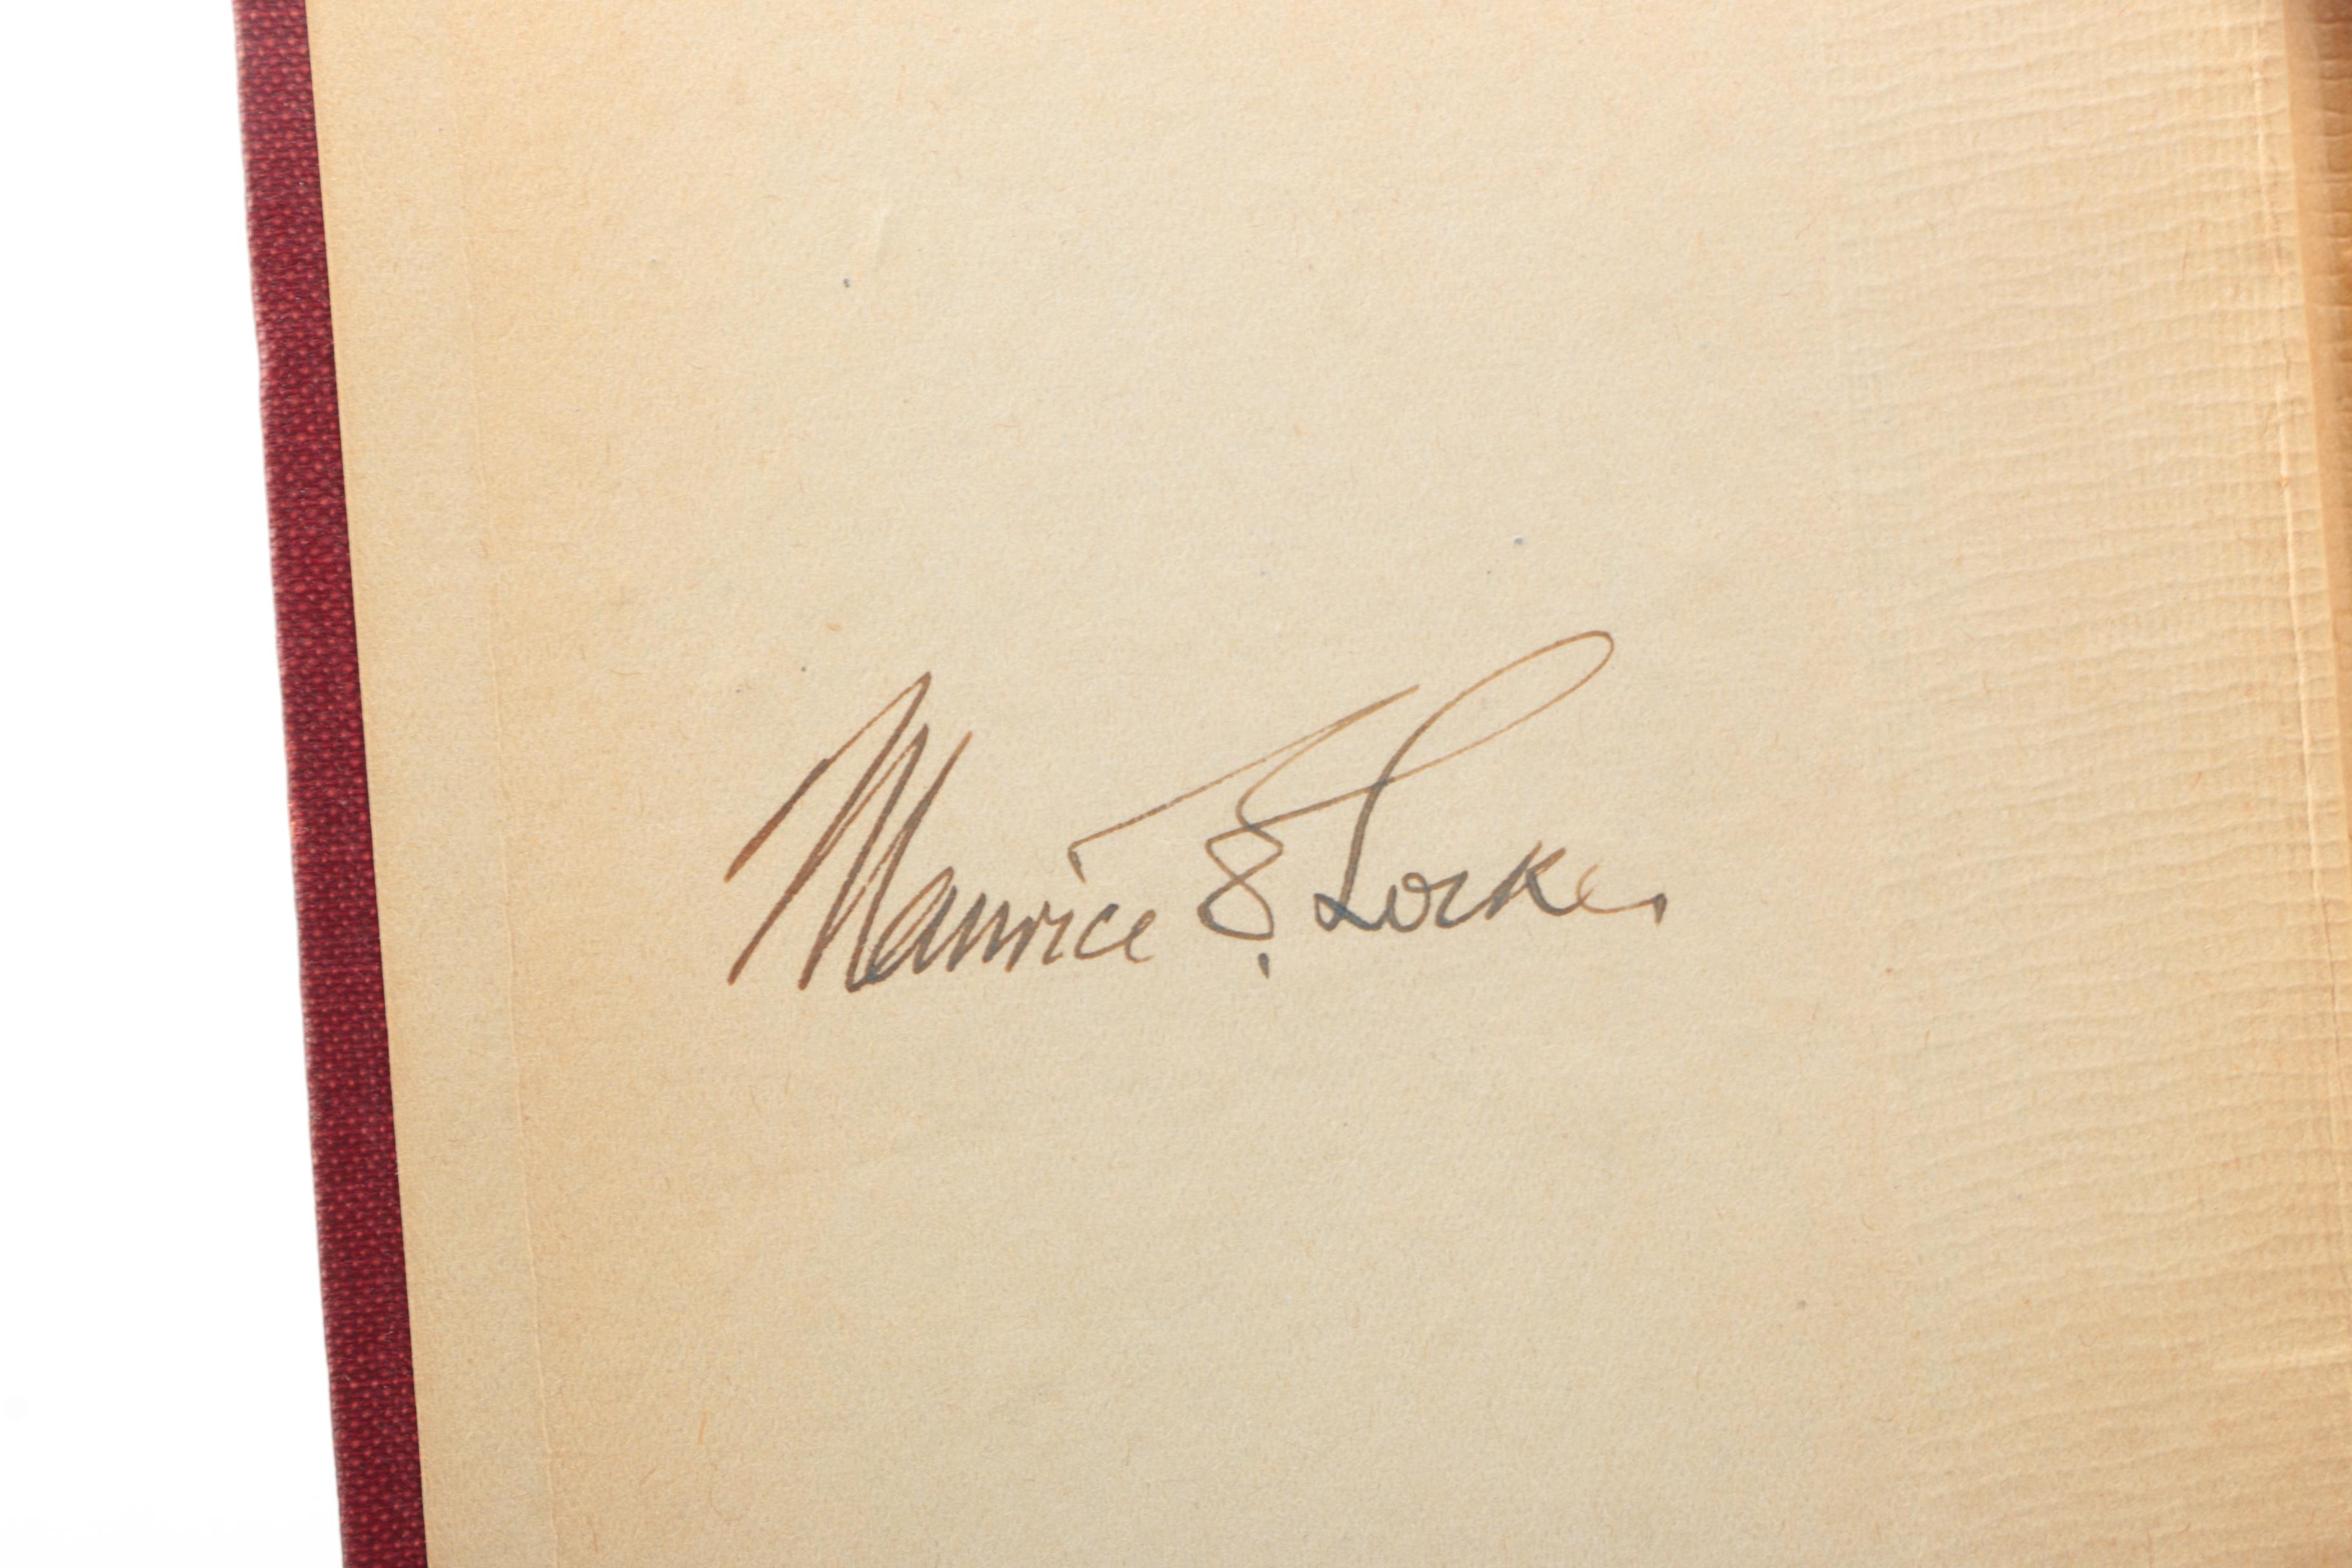 Maurice E. Locke.